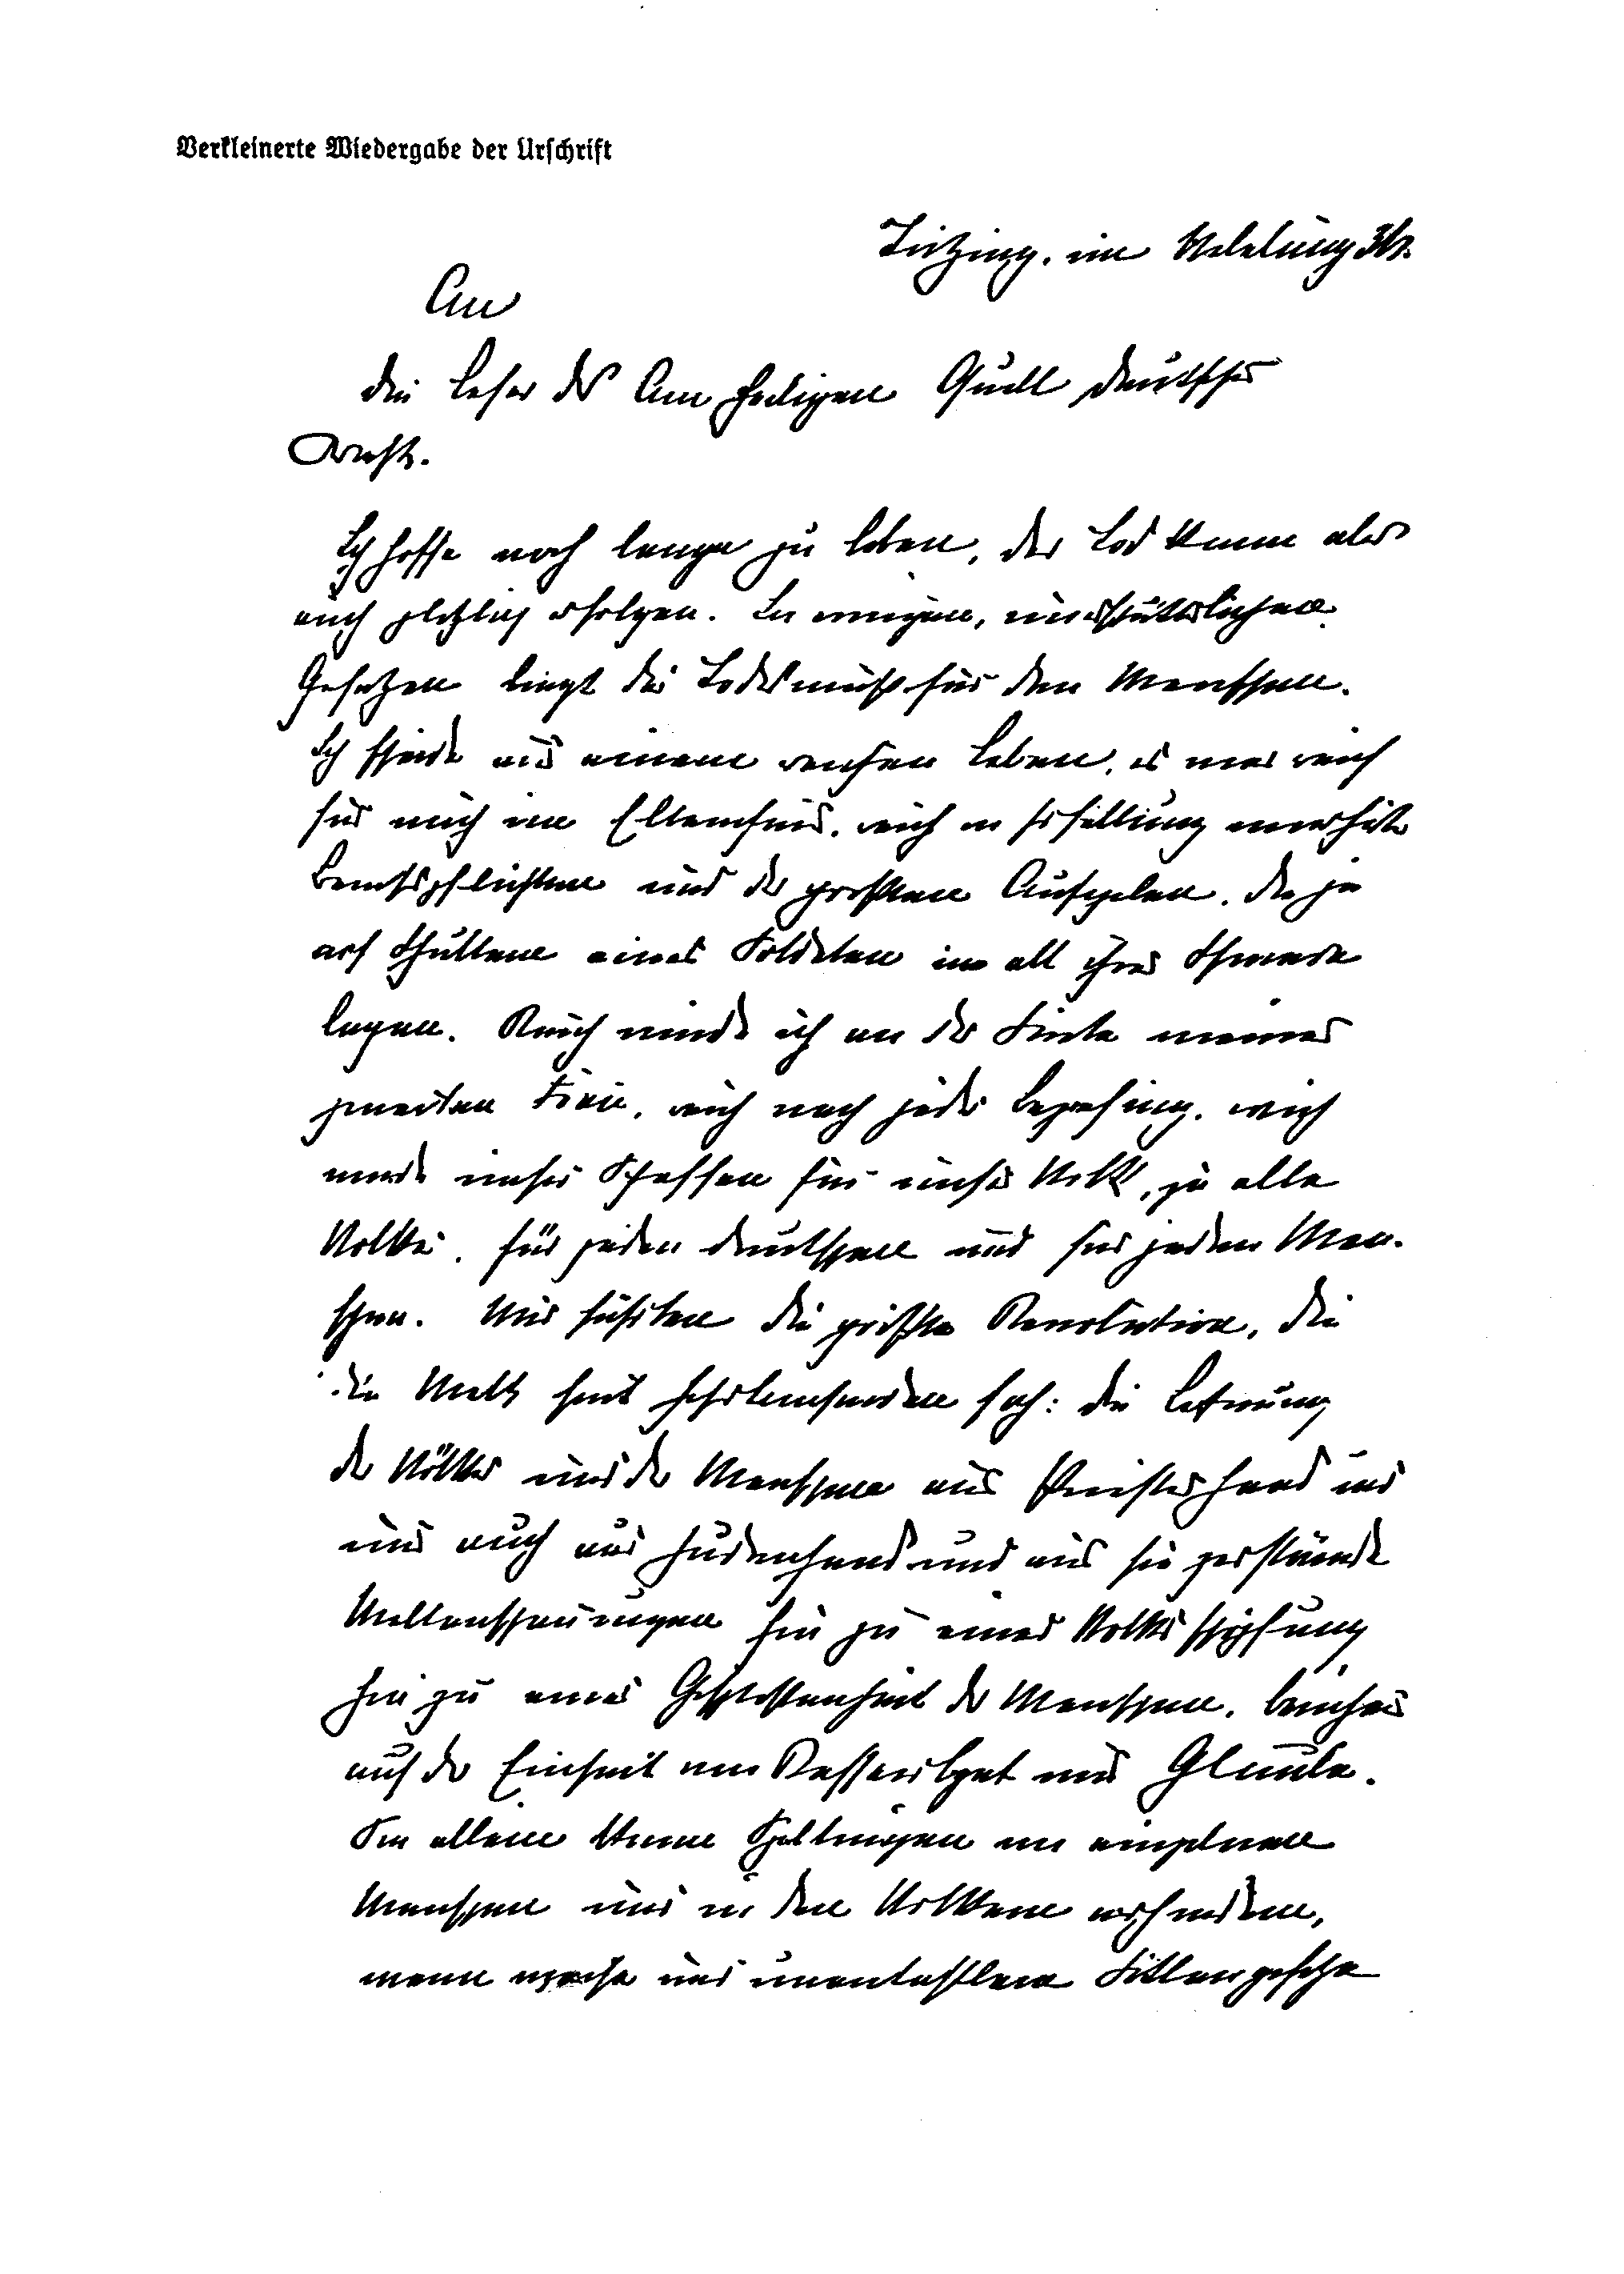 Verkleinerte Wiedergabe der Urschrift
Tutzing, im Nebelung 36.
An
die Leser des Am Heiligen Quell Deutscher
Kraft.
Ich hoffe noch lange zu leben, der Tod kann aber
auch plötzlich erfolgen. In ewigen, unerschütterlichen
Gesetzen liegt das Todesmuß für den Menschen.
Ich scheide aus einem reichen Leben, es war reich
für mich im Elternhaus, reich in Erfüllung
Berufspflichten und der größten Aufgaben, die je
auf Schultern eines Soldaten in all ihrer Schwere
lagen. Reich wurde ich an der Seite meiner
zweiten Frau, reich nach jeder Beziehung, reich
wurde unser Schaffen für unser Volk, ja alle
Völker, für jeden Deutschen und für jeden Men-
schen. Wir führten die größte Revolution, die
die Welt seit Jahrtausenden sah: die Befreiung
der Völker und der Menschen aus Priesterhand und
und auch aus Judenhand und aus sie zerstörende
Weltanschauungen hin zu einer Volksschöpfung
hin zu einer Geschlossenheit der Menschen, beruhend
auf der Einheit von Rasseerbgut und Glaube.
Sie allein kann Spaltungen im einzelnen
Menschen und in den Völkern
wenn und unantastbare Sittengesetze